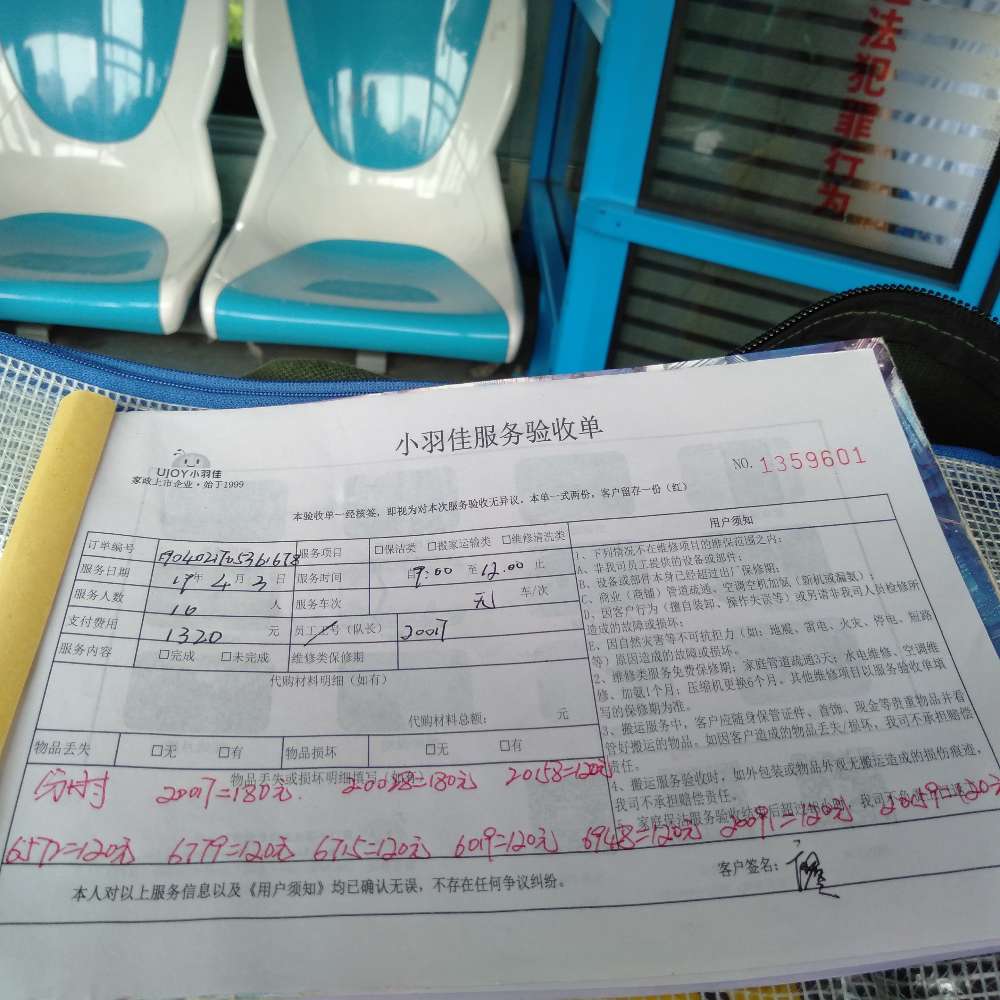 法犯罪行为
小羽佳服务验收单
UJOY小羽佳
家政上市企业·始于1999
NO. 1359601
本验收单一经核签，即视为对本次服务验收无异议，本单一式两份，客户留存一份（红）
订单编号
服务项目 □保洁类 □搬家运输类 □维修清洗类
服务日期 19年 4月 3日 服务时间 自9:00 至12.00 止
服务人数 10 人 服务车次 无 车/次
支付费用 1320 元 员工工号（队长） 20017
服务内容 □完成 □未完成 维修类保修期
代购材料明细（如有）
代购材料总额： 元
物品丢失 □无 □有 物品损坏 □无 □有
物品丢失或损坏明细填写
用户须知
1、下列情况不在维修项目的维保范围之内：
A、非我司员工提供的设备或部件；
B、设备或部件本身已经超过出厂保修期；
C、商业（商铺）管道疏通、空调空机加氨（新机或漏氨）；
D、因客户行为（擅自装卸、操作失误等）或另请非我司人员检修所
造成的故障或损坏；
E、因自然灾害等不可抗拒力（如：地震、雷电、火灾、停电、短路
等）原因造成的故障或损坏。
2、维修类服务免费保修期：家庭管道疏通3天；水电维修、空调维
修、加氨1个月；压缩机更换6个月。其他维修项目以服务验收单填
写的保修期为准。
3、搬运服务中，客户应随身保管证件、首饰、现金等贵重物品并看
管好搬运的物品。如因客户造成的物品丢失/损坏，我司不承担赔偿
责任。
4、搬运服务验收时，如外包装或物品外观无搬运造成的损伤痕迹，
我司不承担赔偿责任。
5、家庭保洁服务验收结
20017=180元 20028=180元 20158=120元
6572=120元 6779=120元 6715=120元 6019=120元 6948=120元 20091=120元 20059=120元
本人对以上服务信息以及《用户须知》均已确认无误，不存在任何争议纠纷。
客户签名：